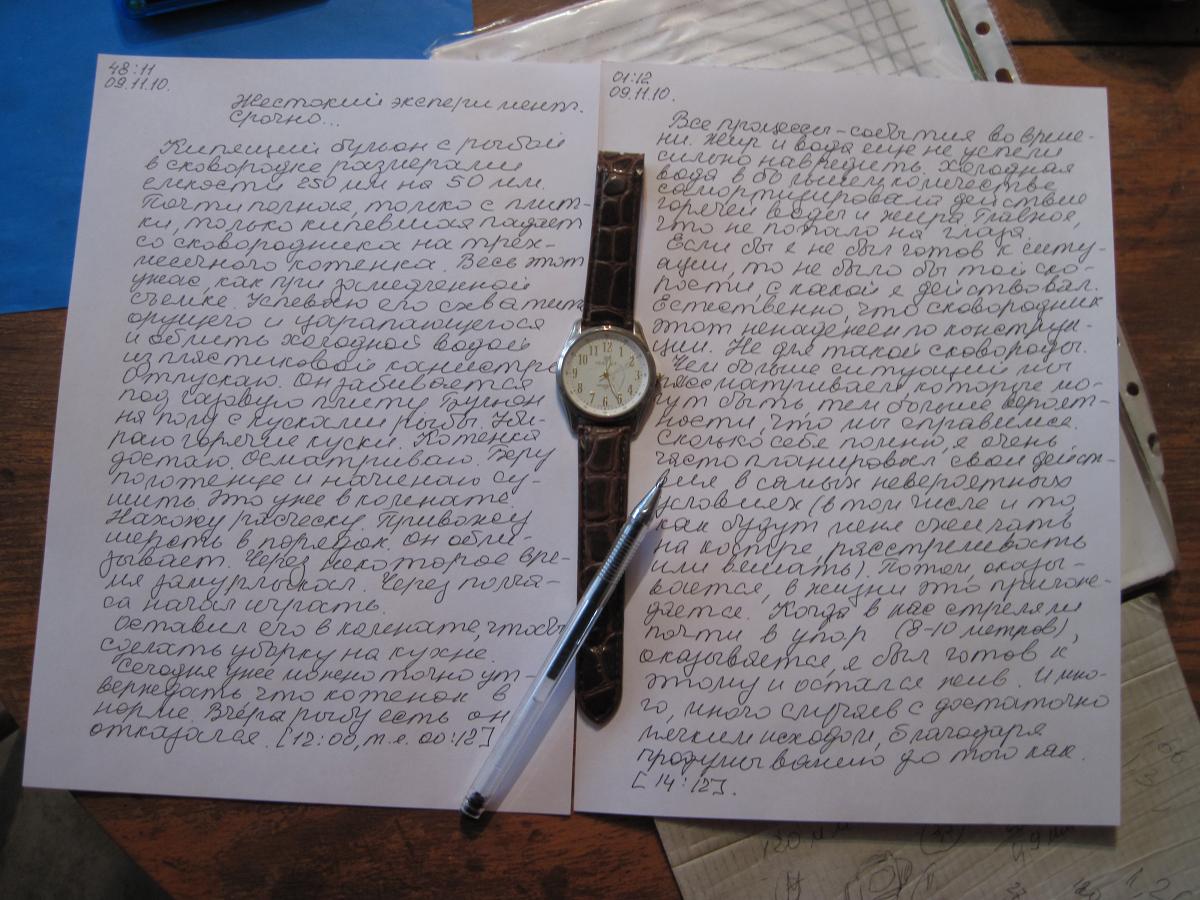 48:11
09.11.10.
Жестокий эксперимент.
Срочно...
Кипящий бульон с рыбой
в сковородке размерами
емкости 250 мм на 50 мм.
Почти полная, только с плит-
ки, только кипевшая падает
со сковородника на трех-
месячного котенка. Весь этот
ужас, как при замедленной
съемке. Успеваю его схватить
орущего и царапающегося
и облить холодной водой
из пластиковой канистры
Отпускаю. Он забивается
под газовую плиту. Бульон
на полу с кусками рыбы. Уби-
раю горячие куски. Котенка
достаю. Осматриваю. Беру
полотенце и начинаю су-
шить. Это уже в комнате.
Нахожу расческу. Привожу
шерсть в порядок. Он обли-
зывает. Через некоторое вре-
мя замурлыкал. Через полча-
са начал играть.
Оставил его в комнате, чтобы
сделать уборку на кухне.
Сегодня уже можно точно ут-
верждать что котенок в
норме. Вчера рыбу есть он
отказался. [12:00, т.е. 00:12]
01:12
09.11.10.
Все процессы-события во време-
ни. Жир и вода еще не успели
сильно навредить. Холодная
вода в большем количестве
самортизировала действие
горячей воды и жира. Главное,
что не попало на глаза.
Если бы я не был готов к ситу-
ации, то не было бы той ско-
рости, с какой я действовал.
Естественно, что сковородник
этот ненадежен по конструк-
ции. Не для такой сковороды.
Чем больше ситуаций мы
рассматриваем, которые мо-
гут быть, тем больше вероят-
ности, что мы справимся.
Сколько себя помню, я очень
часто планировал свои дейст-
вия в самых невероятных
условиях (в том числе и то,
как будут меня сжигать
на костре, расстреливать
или вешать). Потом, оказы-
вается, в жизни это пригож-
дается. Когда в нас стреляли
почти в упор (8-10 метров),
оказывается, я был готов к
этому и остался жив. И мно-
го, много случаев с достаточно
мягким исходом, благодаря
продумыванию до того как.
[14:12].
12